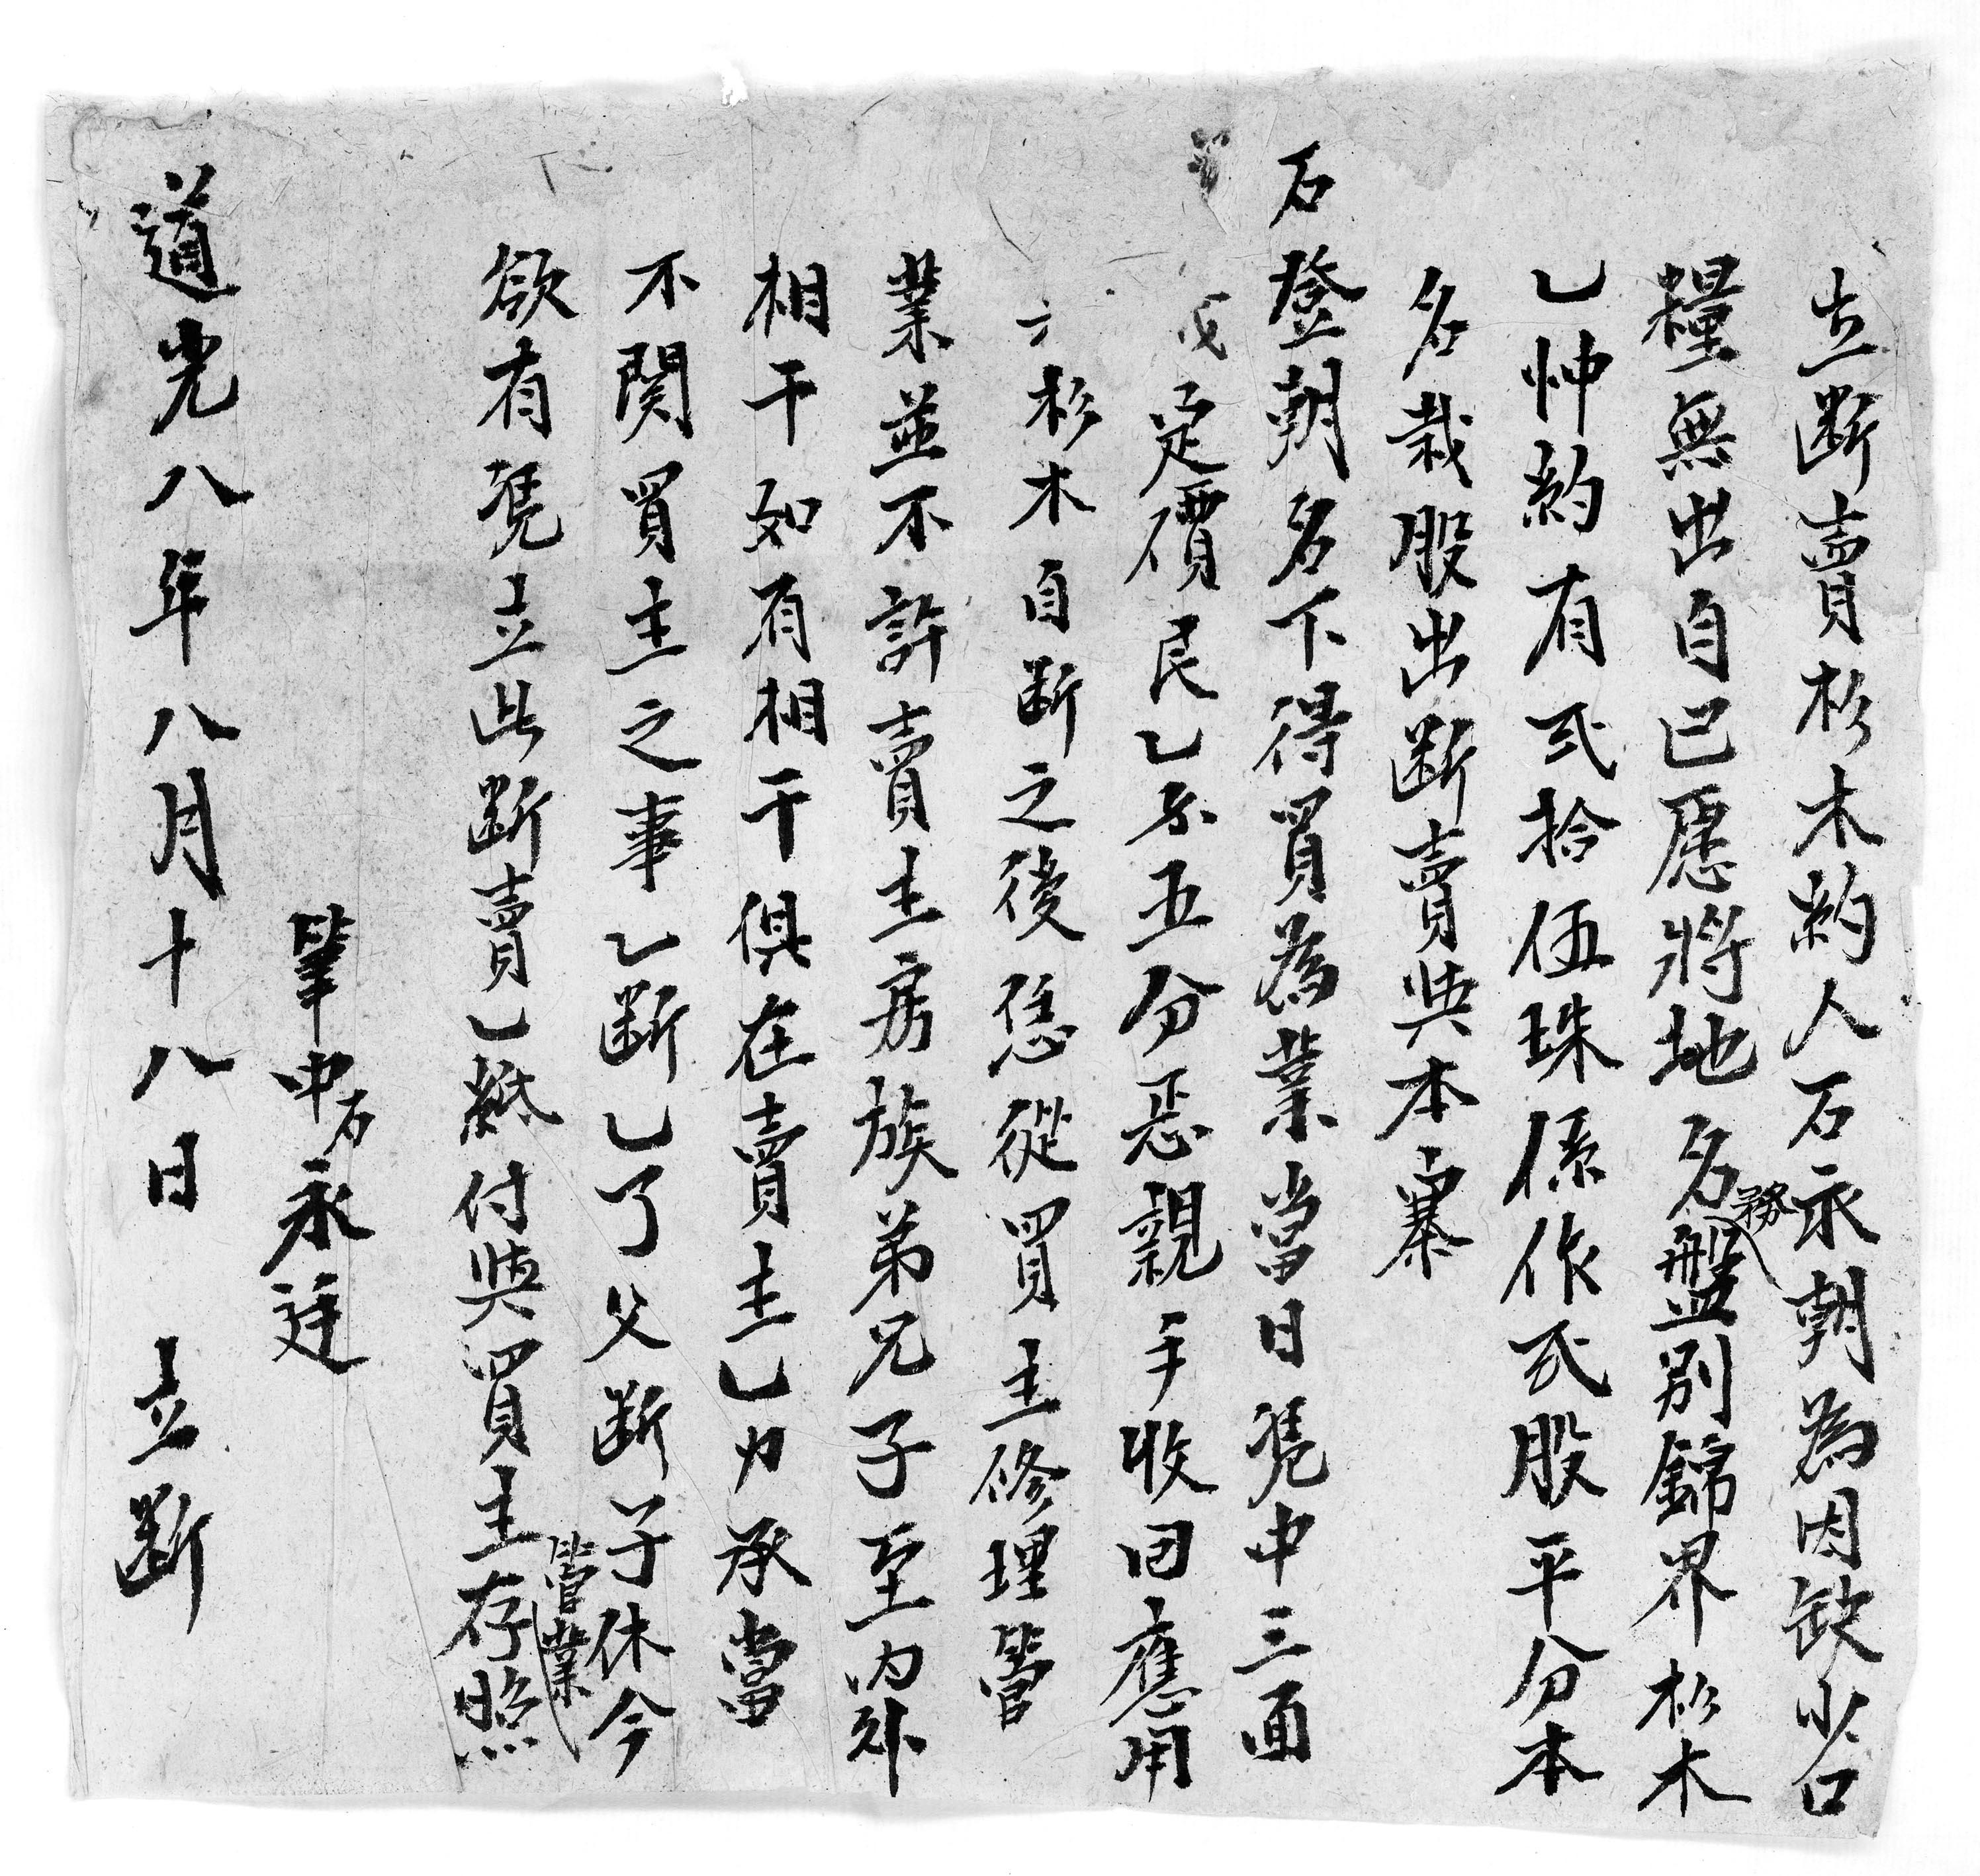 立断賣杉木約人石永朝為因缺少口
糧無出自己愿將地名務盤別錦界杉木
乚忡約有弍拾伍珠係作弍股平分本
名栽股出断賣與本寨
石登朝名下得買為業當日凴中三面
定價艮乚小五分忢親手收回應用
杉木自断之後恁從買主修理管
業並不許賣主房族弟兄子至内外
相干如有相干俱在賣主乚力承當
不関買主之事乚断乚了父断子休今
欲有凴立此断賣乚紙付與買主管業存照
筆中石永廷
道光八年八月十八日 立断